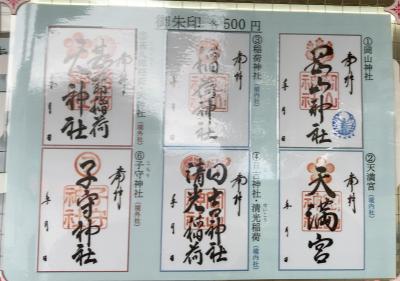 御朱印 各500円
①岡山神社
奉拝
岡山神社
年 月 日
②天満宮
(境内社)
奉拝
天満宮
年 月 日
③稲荷神社
(境内社)
奉拝
稲荷神社
年 月 日
④日吉神社・清光稲荷
(境内社)
奉拝
日吉神社
清光稲荷
年 月 日
(境外社)
奉拝
稲荷
神社
年 月 日
⑥子守神社
(境外社)
奉拝
子守神社
年 月 日